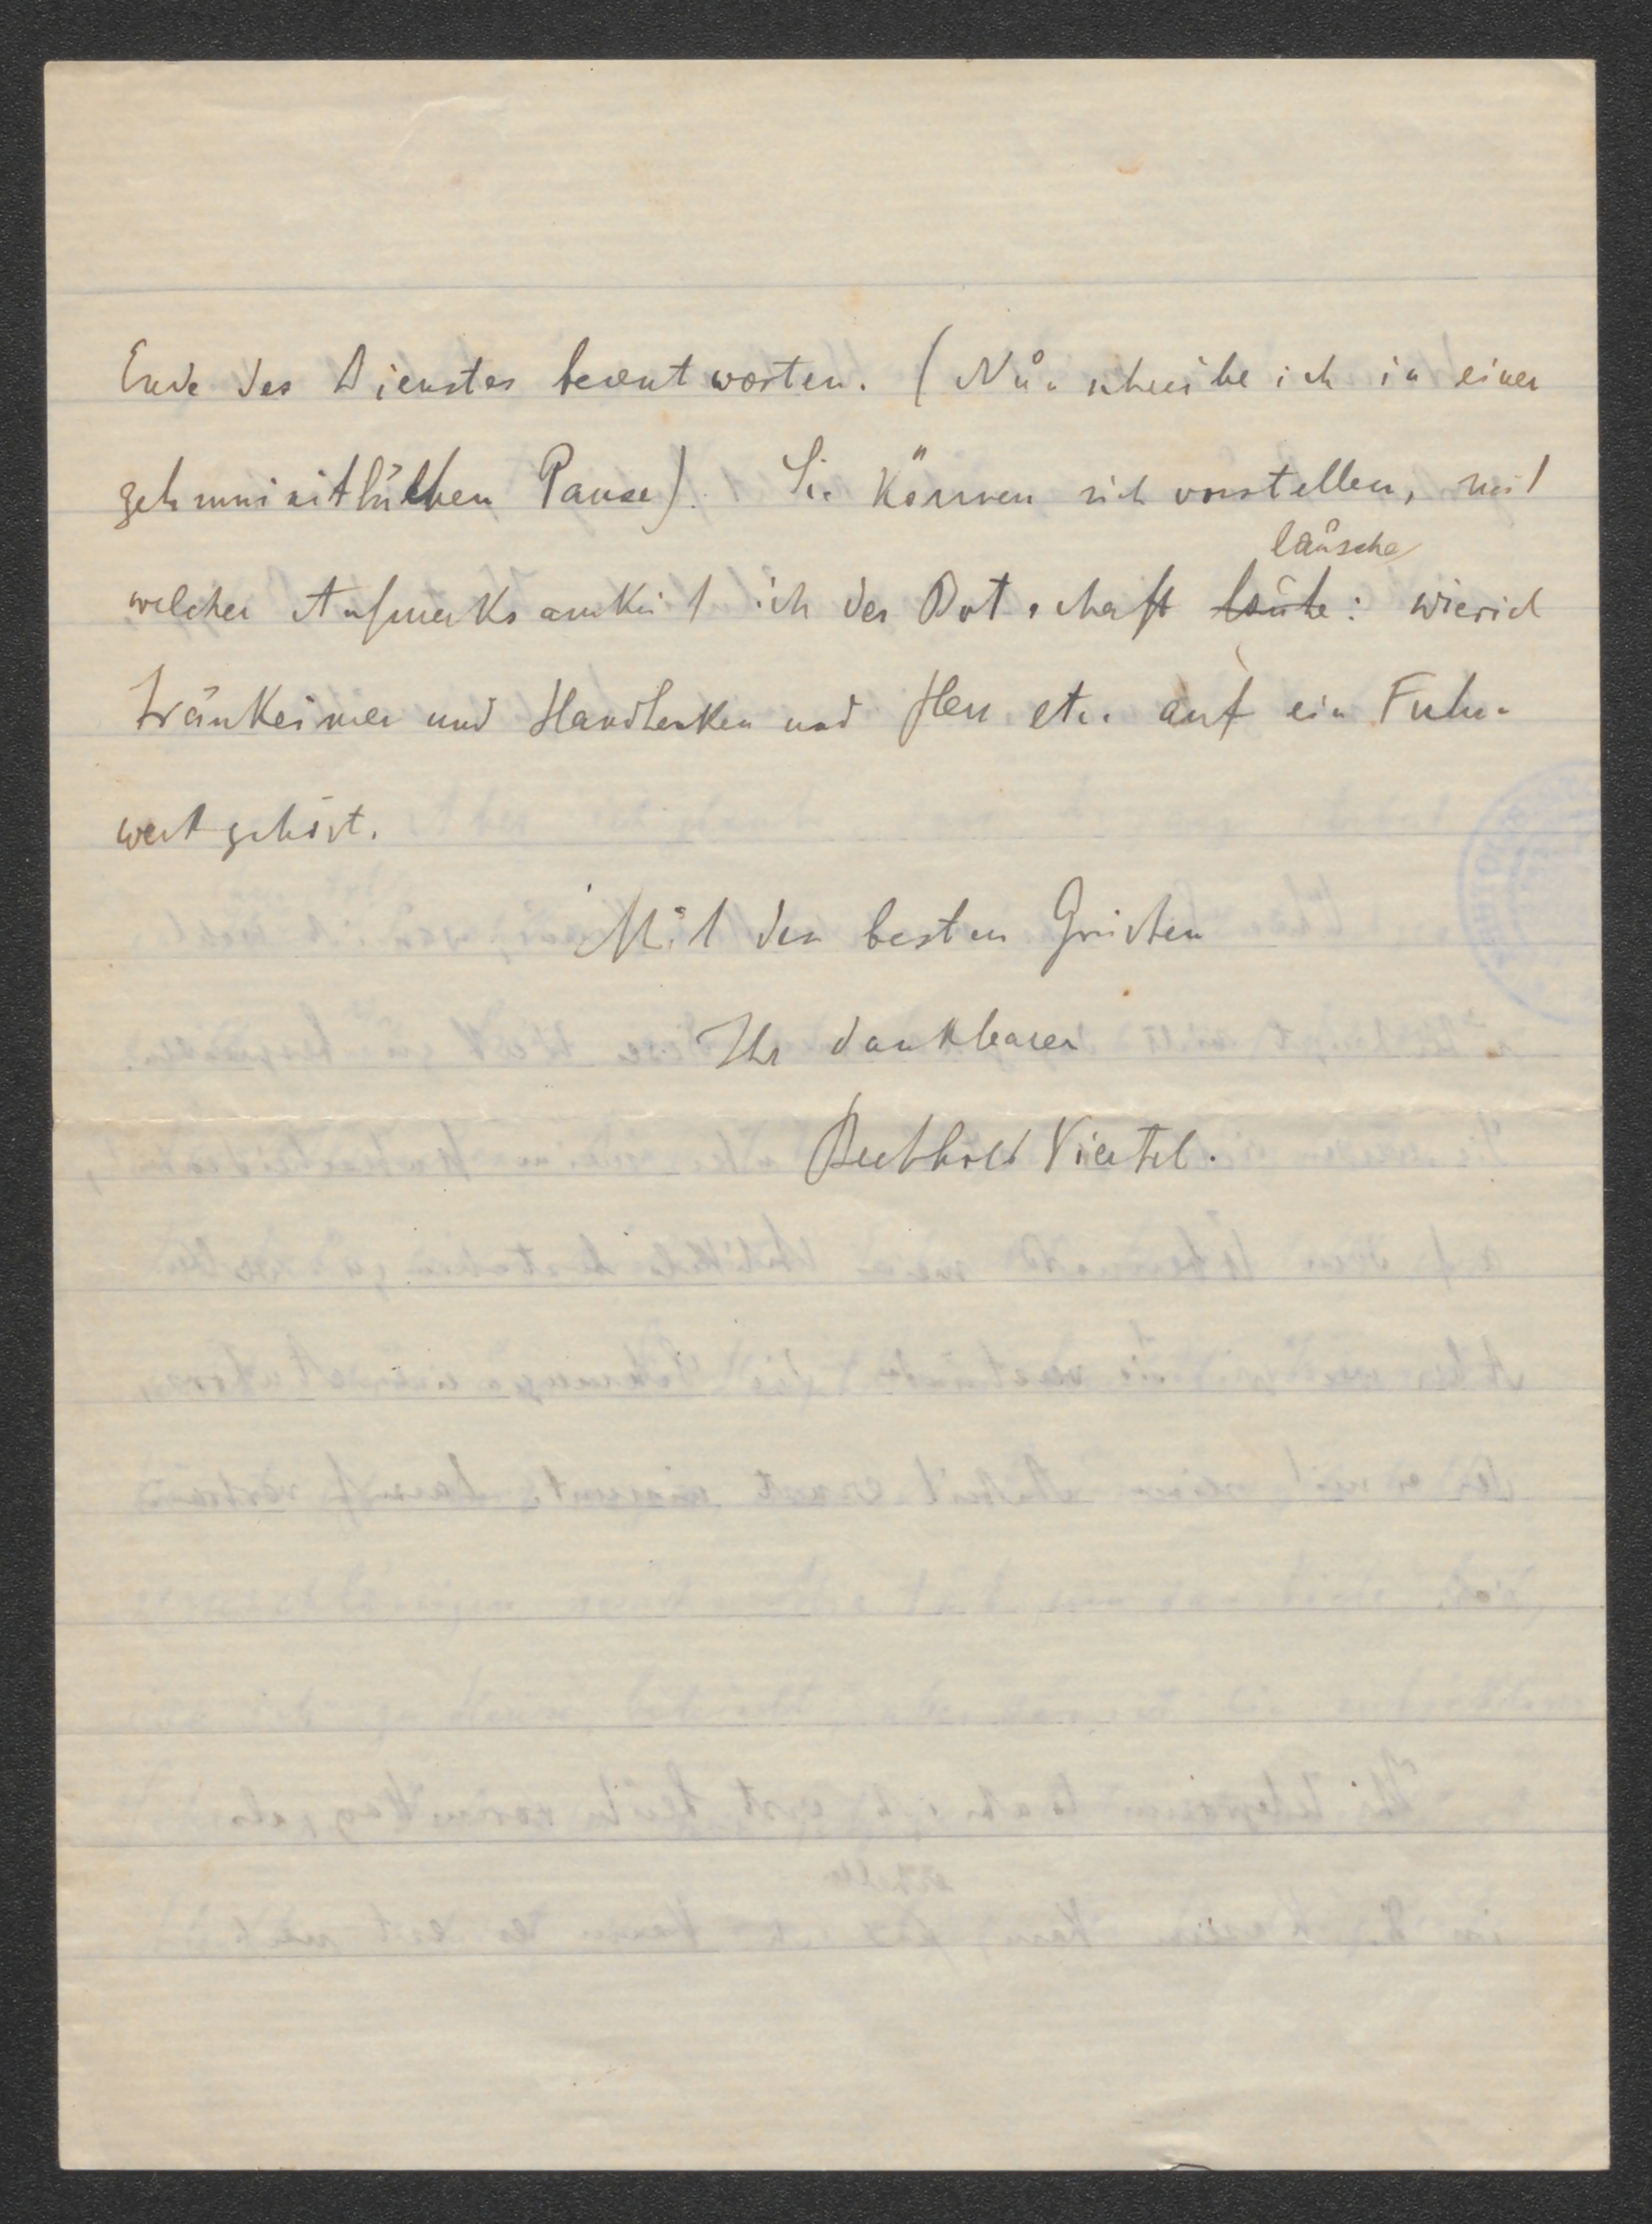 Ende des Dienstes beantworten. (Nun schreibe ich in einer
zehnminütlichen Pause). Sie können sich vorstellen, mit
lausche
welcher Aufmerksamkeit ich der Botschaft : wieviel
Tränkeimer und Handhacken und Heu etc. auf ein Fuhr-
werk gehört.
Mit den besten Grüssen
Ihr dankbarer
Berthold Viertel.